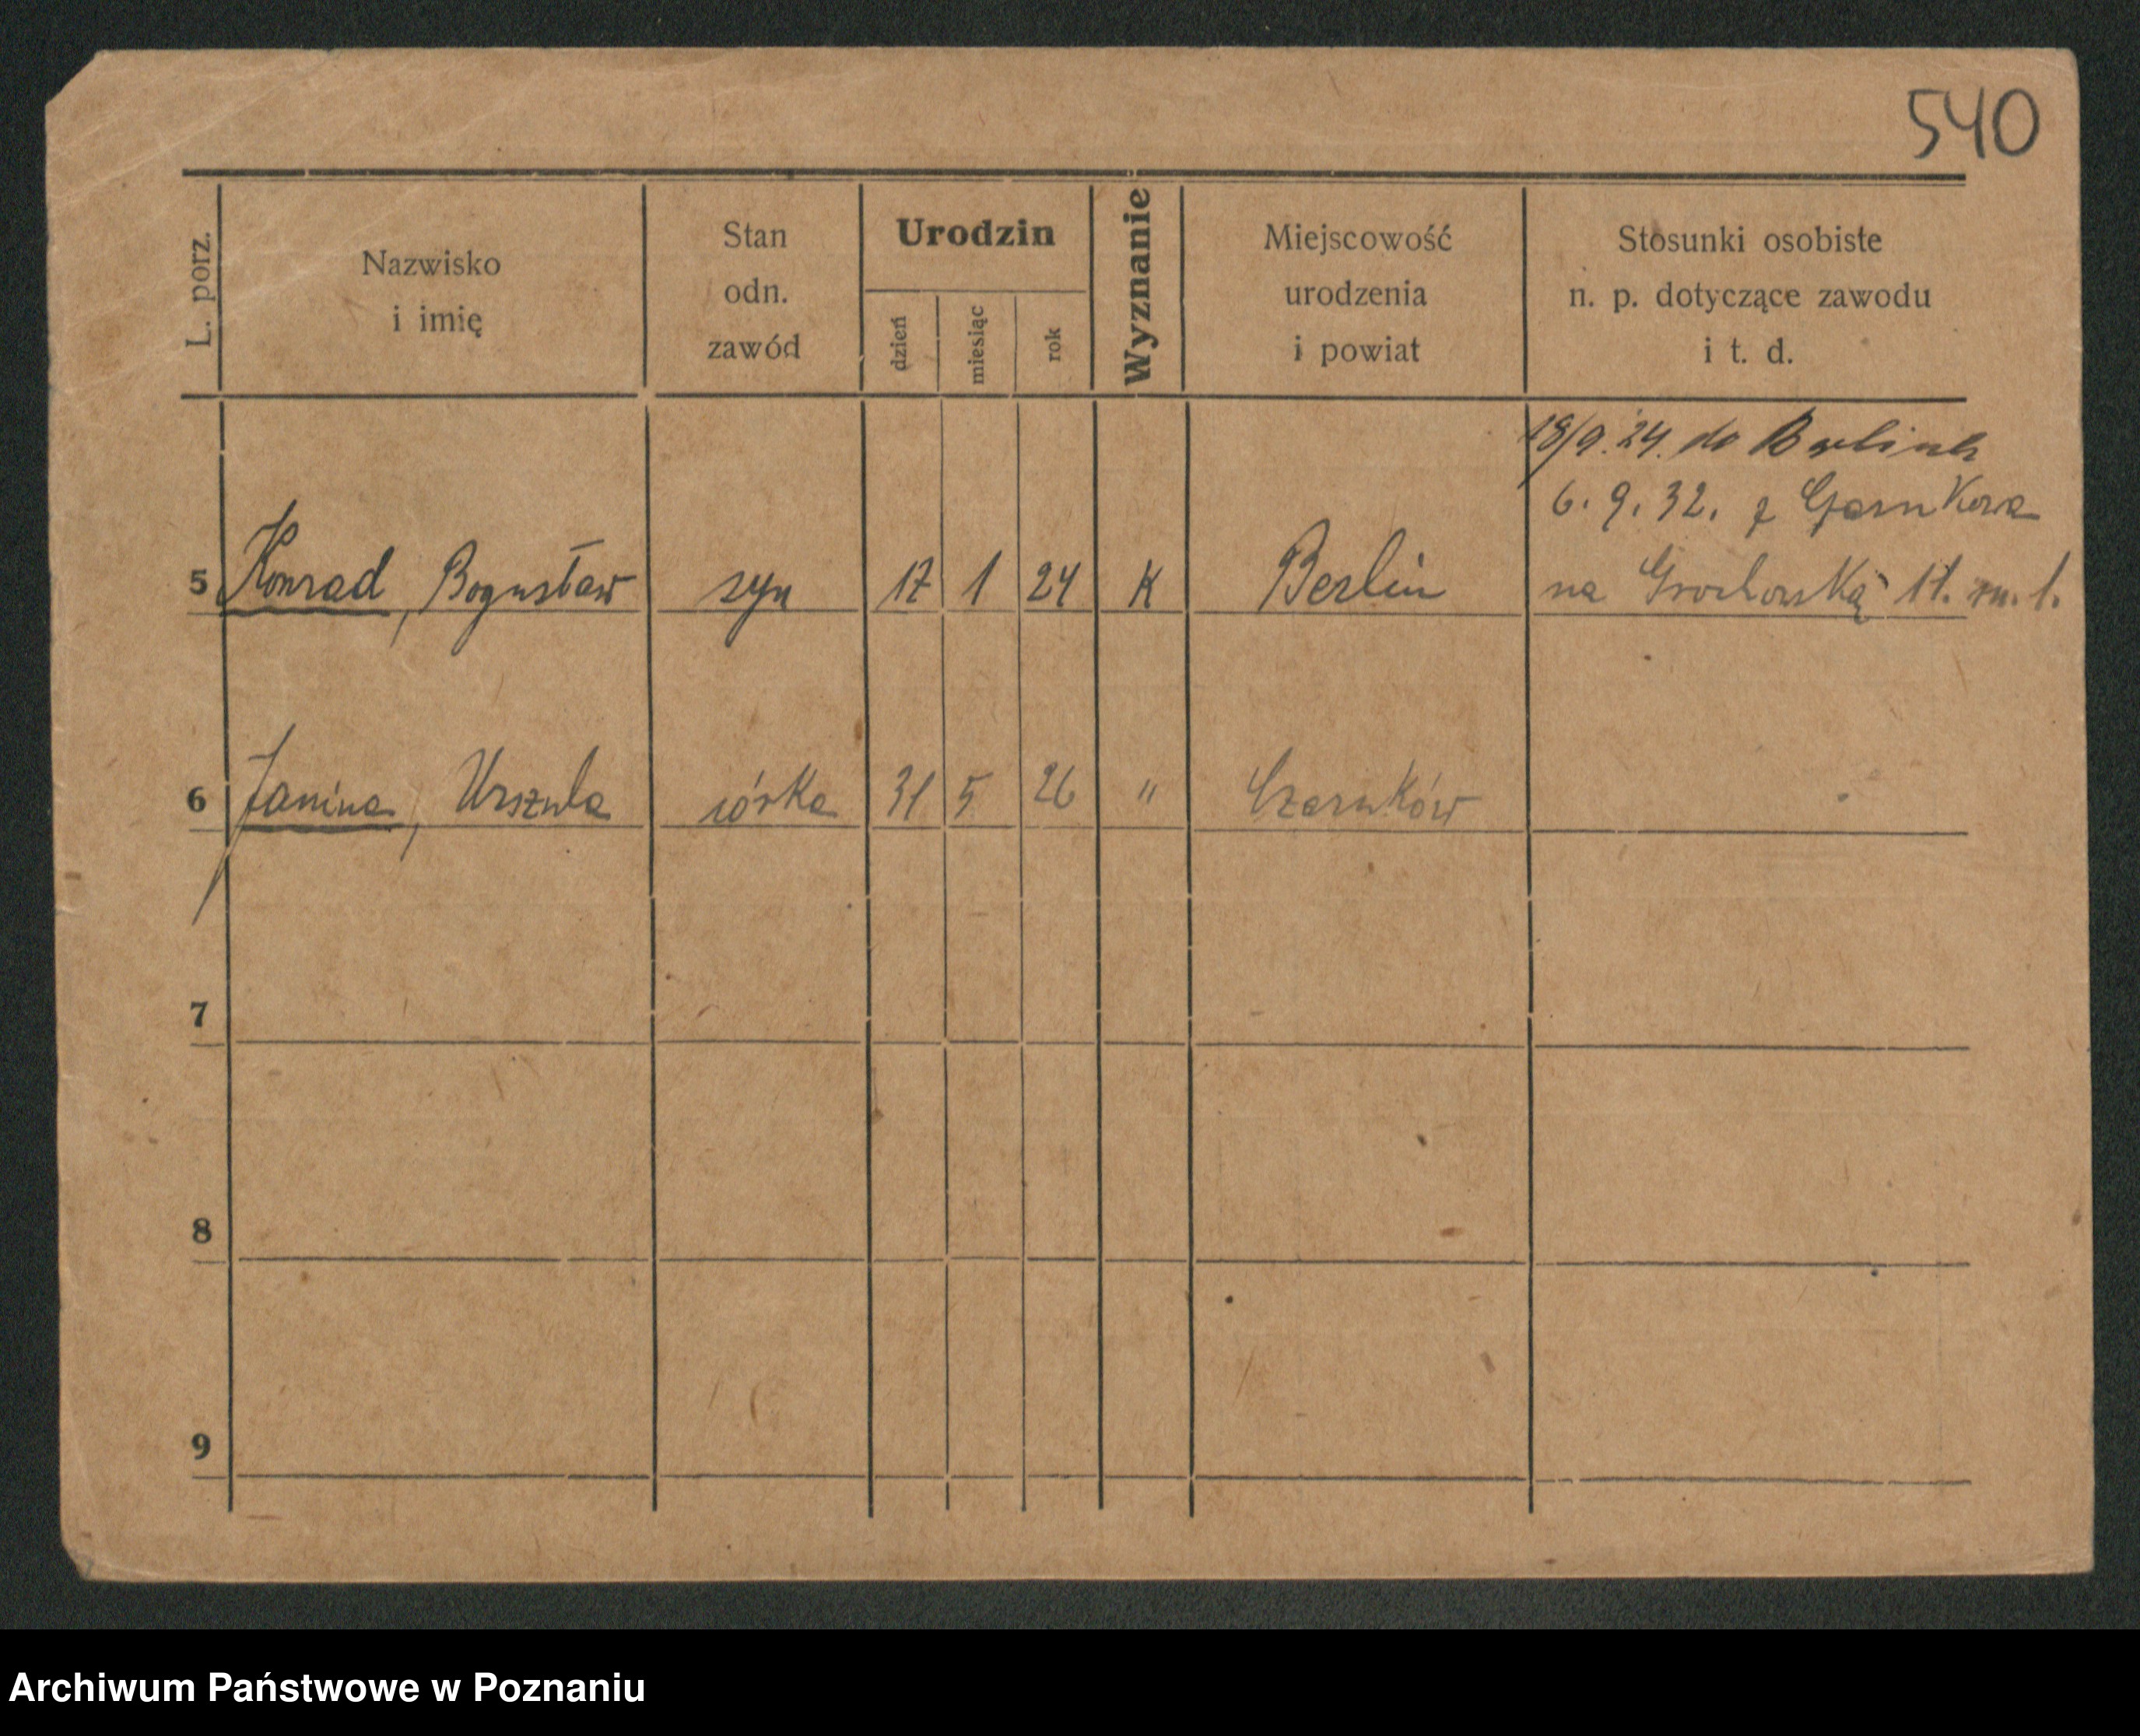 540
L. porz.
Nazwisko
i imię
Stan
odn.
zawód
Urodzin
dzień
miesiąc
rok
Wyznanie
Miejscowość
urodzenia
i powiat
Stosunki osobiste
n. p. dotyczące zawodu
i t. d.
18/9.24. do Berlina
6. 9. 32. z Czarnkowa
5 Konrad, Bogusław syn 17 1 24 K Berlin na Grochowską 11. m. 1.
6 Janina, Urszula córka 31 5 26 " Czarnków
7
8
9
Archiwum Państwowe w Poznaniu